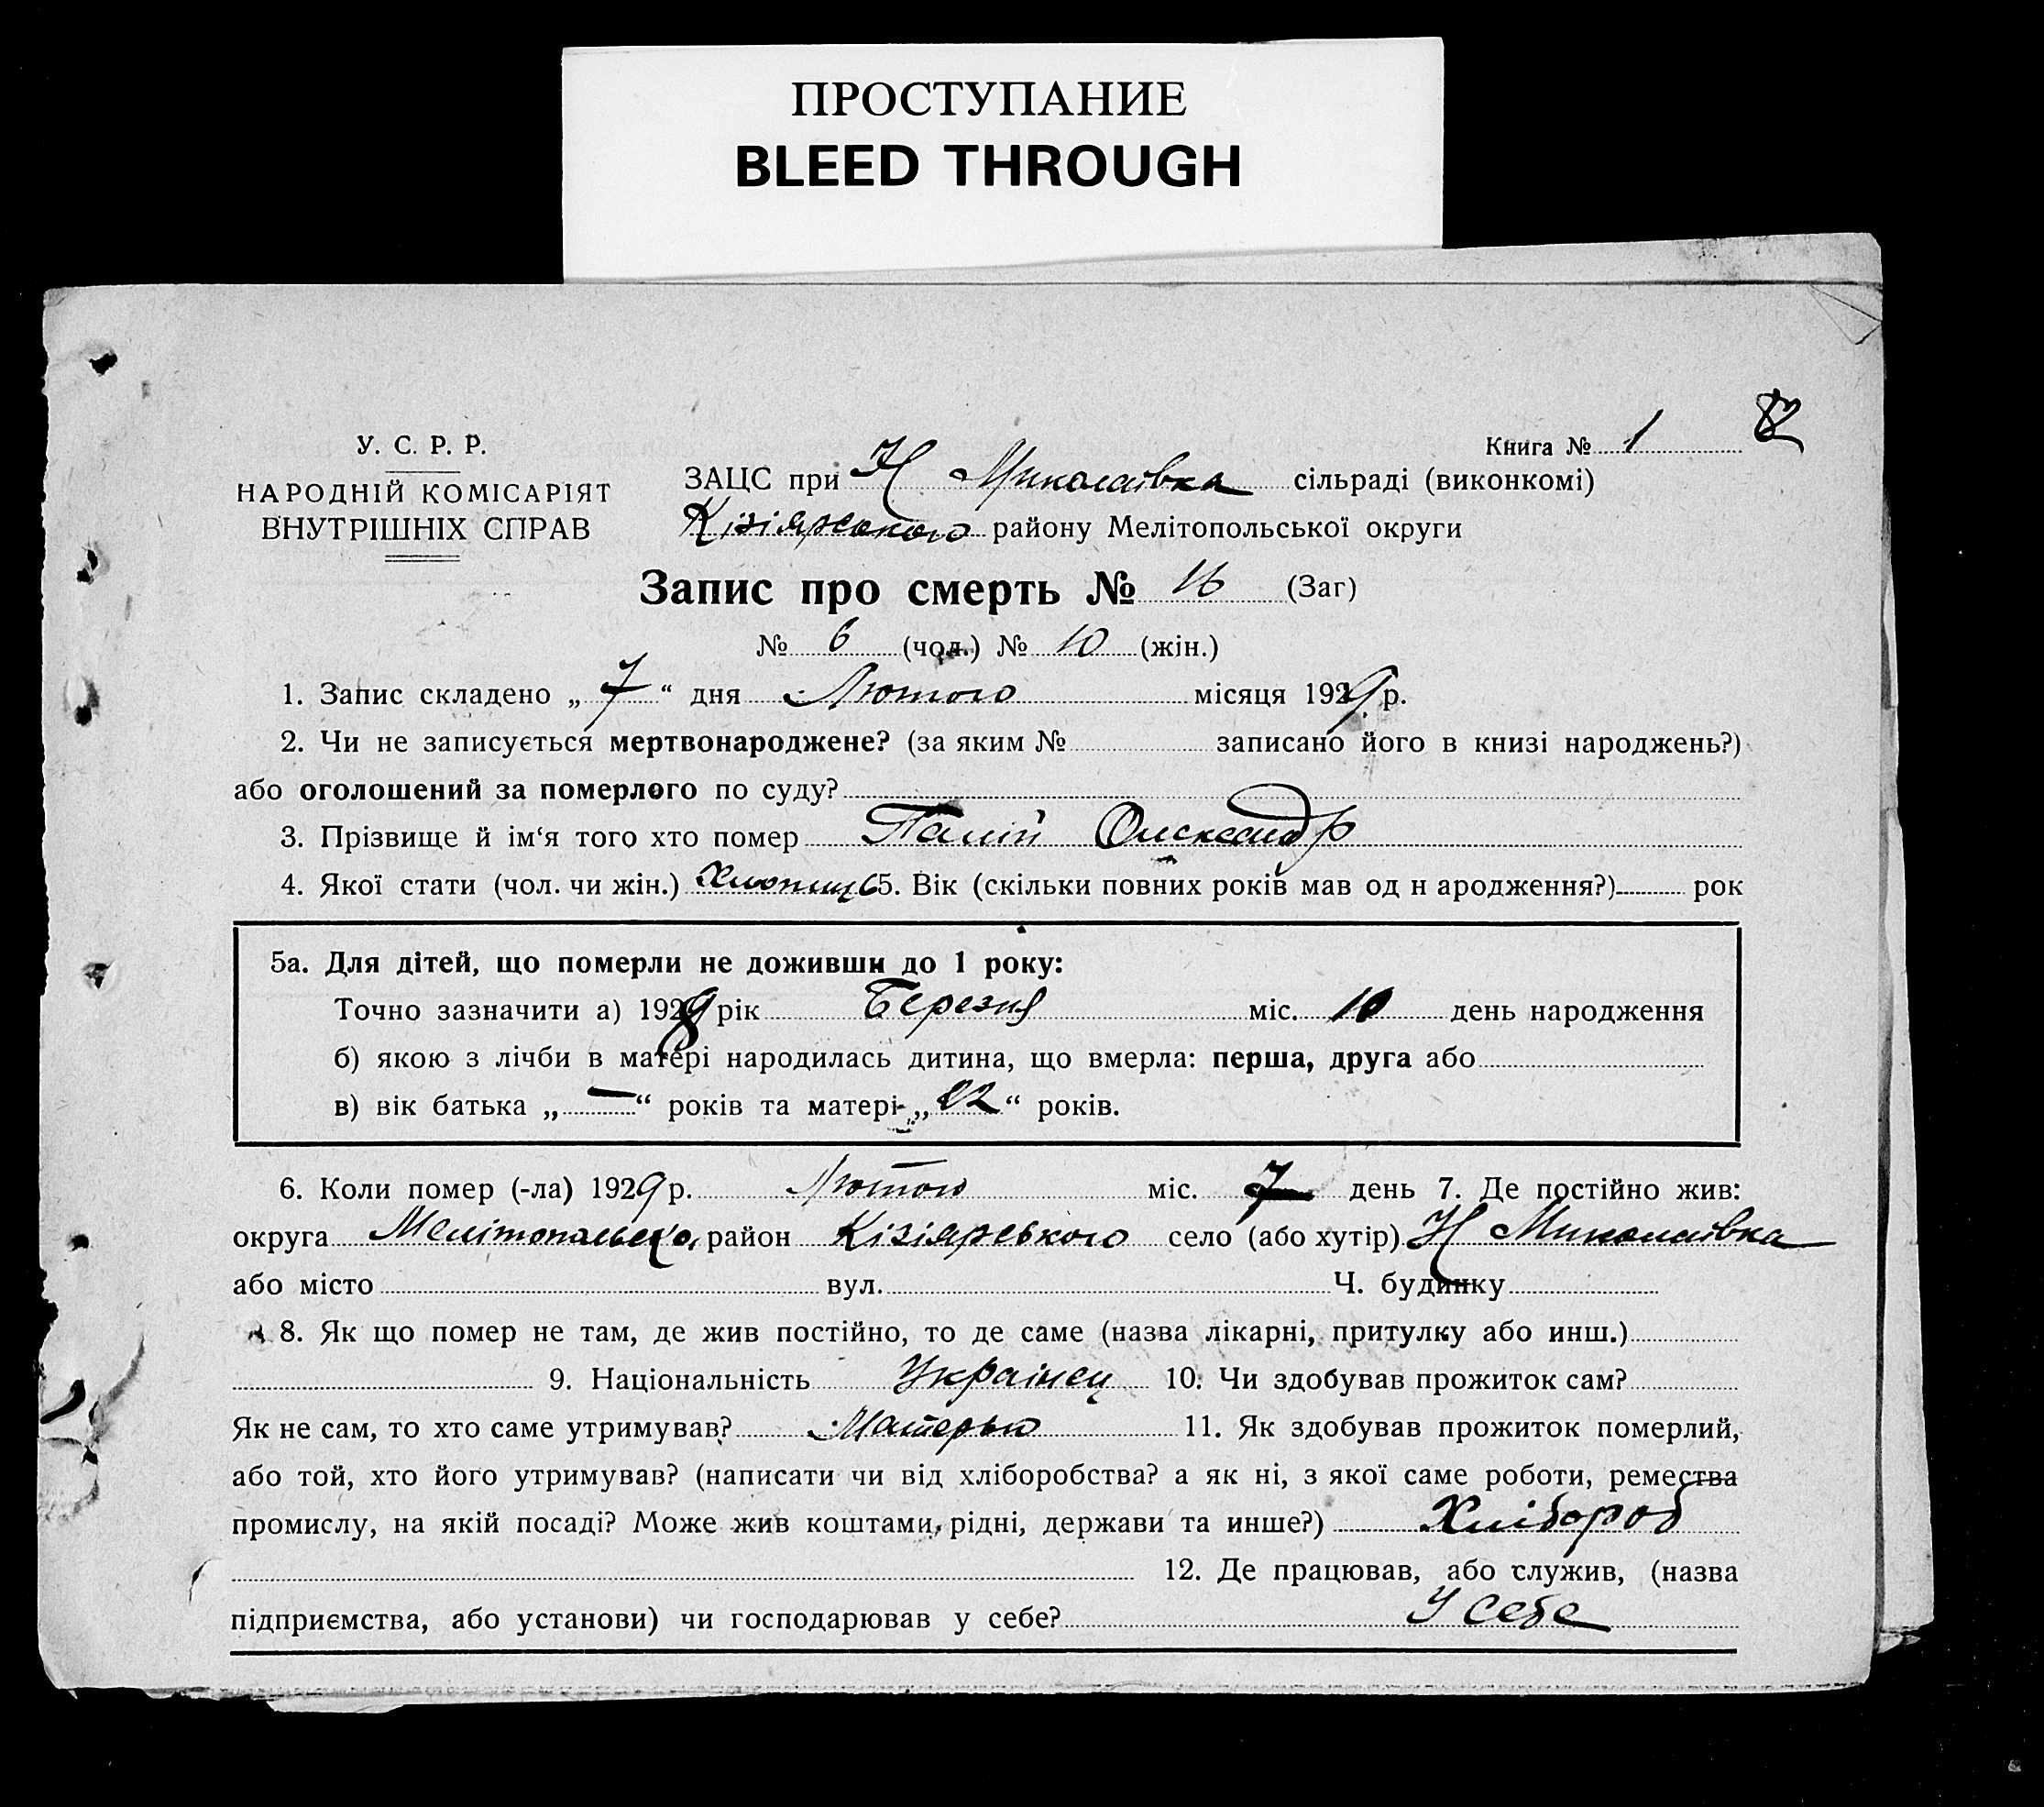 ПРОСТУПАНИЕ
BLEED THROUGH
У. С. Р. Р.
НАРОДНІЙ КОМІСАРІЯТ
ВНУТРІШНІХ СПРАВ
Книга № 1
ЗАЦС при Н Миколаївка сільраді (виконкомі)
Кізіярського району Мелітопольської округи
Запис про смерть № 16 (Заг)
№ 6 (чол.) № 10 (жін.)
1. Запис складено „ 7 “ дня Лютого місяця 1929 р.
2. Чи не записується мертвонароджене? (за яким № записано його в книзі народжень?)
або оголошений за померлого по суду?
3. Прізвище й ім‘я того хто помер Палій Олександр
4. Якої стати (чол. чи жін.) Хлопець 5. Вік (скільки повних років мав од н ародження?) рок
5а. Для дітей, що померли не доживши до 1 року:
Точно зазначити а) 1928 рік Березня міс. 10 день народження
б) якою з лічби в матері народилась дитина, що вмерла: перша, друга або
в) вік батька „ — “ років та матері „ 22 “ років.
6. Коли помер (-ла) 1929 р. Лютого міс. 7 день 7. Де постійно жив:
округа Мелітопольська район Кізіярського село (або хутір) Н Миколаївка
або місто вул. Ч. будинку
8. Як що помер не там, де жив постійно, то де саме (назва лікарні, притулку або инш.)
9. Національність Українец 10. Чи здобував прожиток сам?
Як не сам, то хто саме утримував? Матерью 11. Як здобував прожиток померлий,
або той, хто його утримував? (написати чи від хліборобства? а як ні, з якої саме роботи, ремества
промислу, на якій посаді? Може жив коштами, рідні, держави та инше?) Хлібороб
12. Де працював, або служив, (назва
підприємства, або установи) чи господарював у себе? У себе